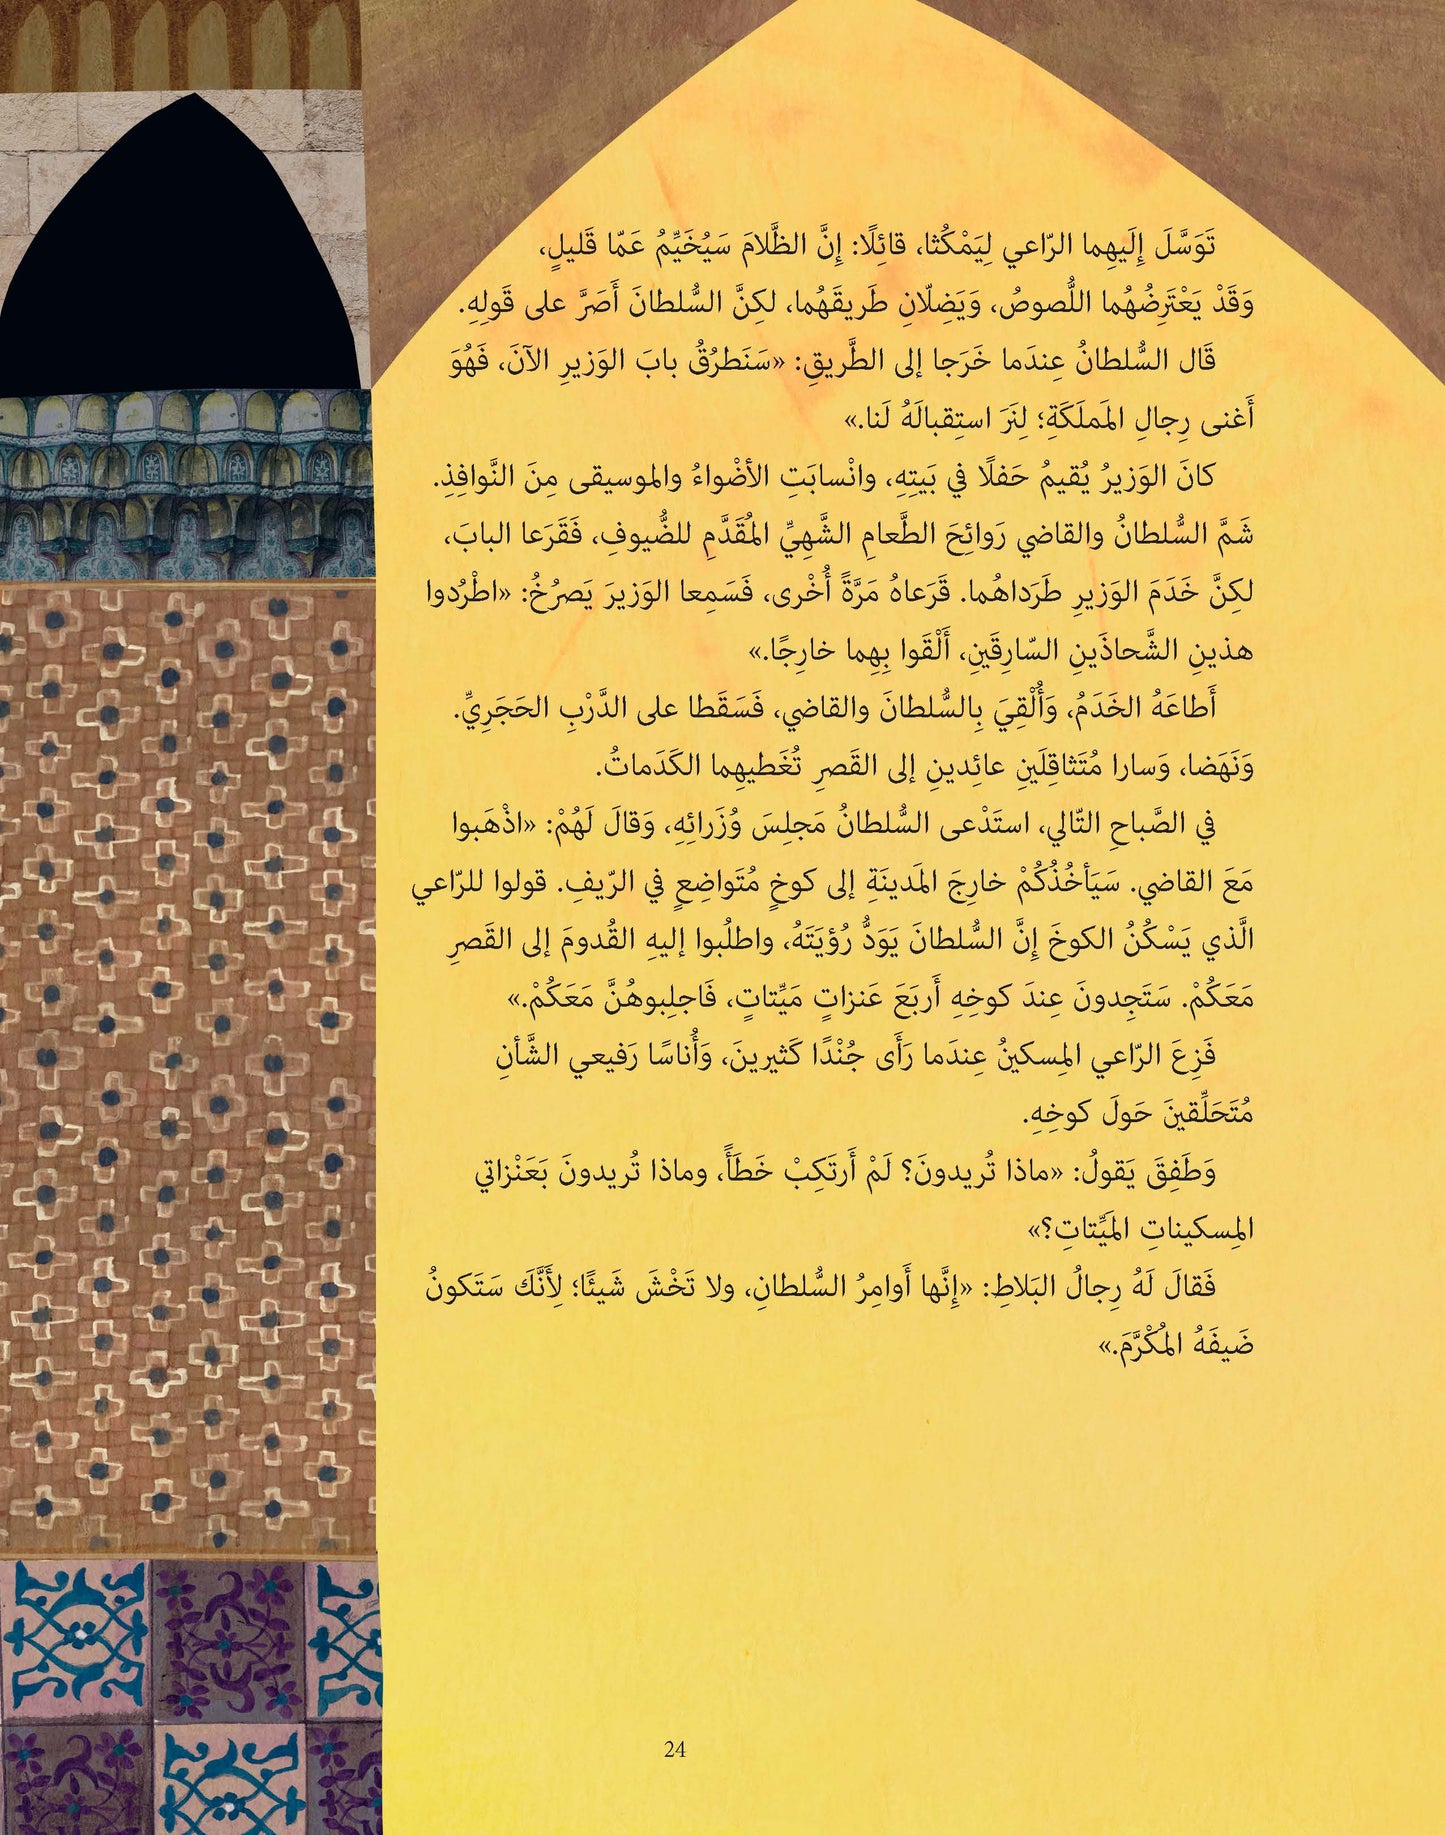 تَوَسَّلَ إِلَيهِما الرّاعي لِيَمْكُثا، قائِلًا: إِنَّ الظَّلامَ سَيُخَيِّمُ عَمّا قَليلٍ،
وَقَدْ يَعْتَرِضُهُما اللُّصوصُ، وَيَضِلّانِ طَريقَهُما، لكِنَّ السُّلطانَ أَصَرَّ على قَولِهِ.
قَال السُّلطانُ عِندَما خَرَجا إلى الطَّريقِ: «سَنَطرُقُ بابَ الوَزيرِ الآنَ، فَهُوَ
أَغنى رِجالِ المَملَكَةِ؛ لِنَرَ استِقبالَهُ لَنا.»
كانَ الوَزيرُ يُقيمُ حَفلًا في بَيتِهِ، وانْسابَتِ الأضْواءُ والموسيقى مِنَ النَّوافِذِ.
شَمَّ السُّلطانُ والقاضي رَوائِحَ الطَّعامِ الشَّهِيِّ المُقَدَّمِ للضُّيوفِ، فَقَرَعا البابَ،
لكِنَّ خَدَمَ الوَزيرِ طَرَداهُما. قَرَعاهُ مَرَّةً أُخْرى، فَسَمِعا الوَزيرَ يَصرُخُ: «اطْرُدوا
هذينِ الشَّحاذَينِ السّارِقَينِ، أَلْقَوا بِهِما خارِجًا.»
أَطاعَهُ الخَدَمُ، وَأُلْقِيَ بِالسُّلطانَ والقاضي، فَسَقَطا على الدَّرْبِ الحَجَرِيِّ.
وَنَهَضا، وَسارا مُتَثاقِلَينِ عائِدينِ إلى القَصرِ تُغَطيهِما الكَدَماتُ.
في الصَّباحِ التّالي، استَدْعى السُّلطانُ مَجلِسَ وُزَرائِهِ، وَقالَ لَهُمْ: «اذْهَبوا
مَعَ القاضي. سَيَأخُذُكُمْ خارِجَ المَدينَةِ إلى كوخٍ مُتَواضِعٍ في الرّيفِ. قولوا للرّاعي
الَّذي يَسْكُنُ الكوخَ إِنَّ السُّلطانَ يَوَدُّ رُؤيَتَهُ، واطلُبوا إليهِ القُدومَ إلى القَصرِ
مَعَكُمْ. سَتَجِدونَ عِندَ كوخِهِ أَربَعَ عَنزاتٍ مَيِّتاتٍ، فَاجلِبوهُنَّ مَعَكُمْ.»
فَزِعَ الرّاعي المِسكينُ عِندَما رَأَى جُنْدًا كَثيرينَ، وَأُناسًا رَفيعي الشَّأنِ
مُتَحَلِّقينَ حَولَ كوخِهِ.
وَطَفِقَ يَقولُ: «ماذا تُريدونَ؟ لَمْ أَرتَكِبْ خَطَأً، وماذا تُريدونَ بَعَنْزاتي
المِسكيناتِ المَيِّتاتِ؟»
فَقالَ لَهُ رِجالُ البَلاطِ: «إِنَّها أَوامِرُ السُّلطانِ، ولا تَخْشَ شَيئًا؛ لِأَنَّكَ سَتَكونُ
ضَيفَهُ المُكْرَّمَ.»
24